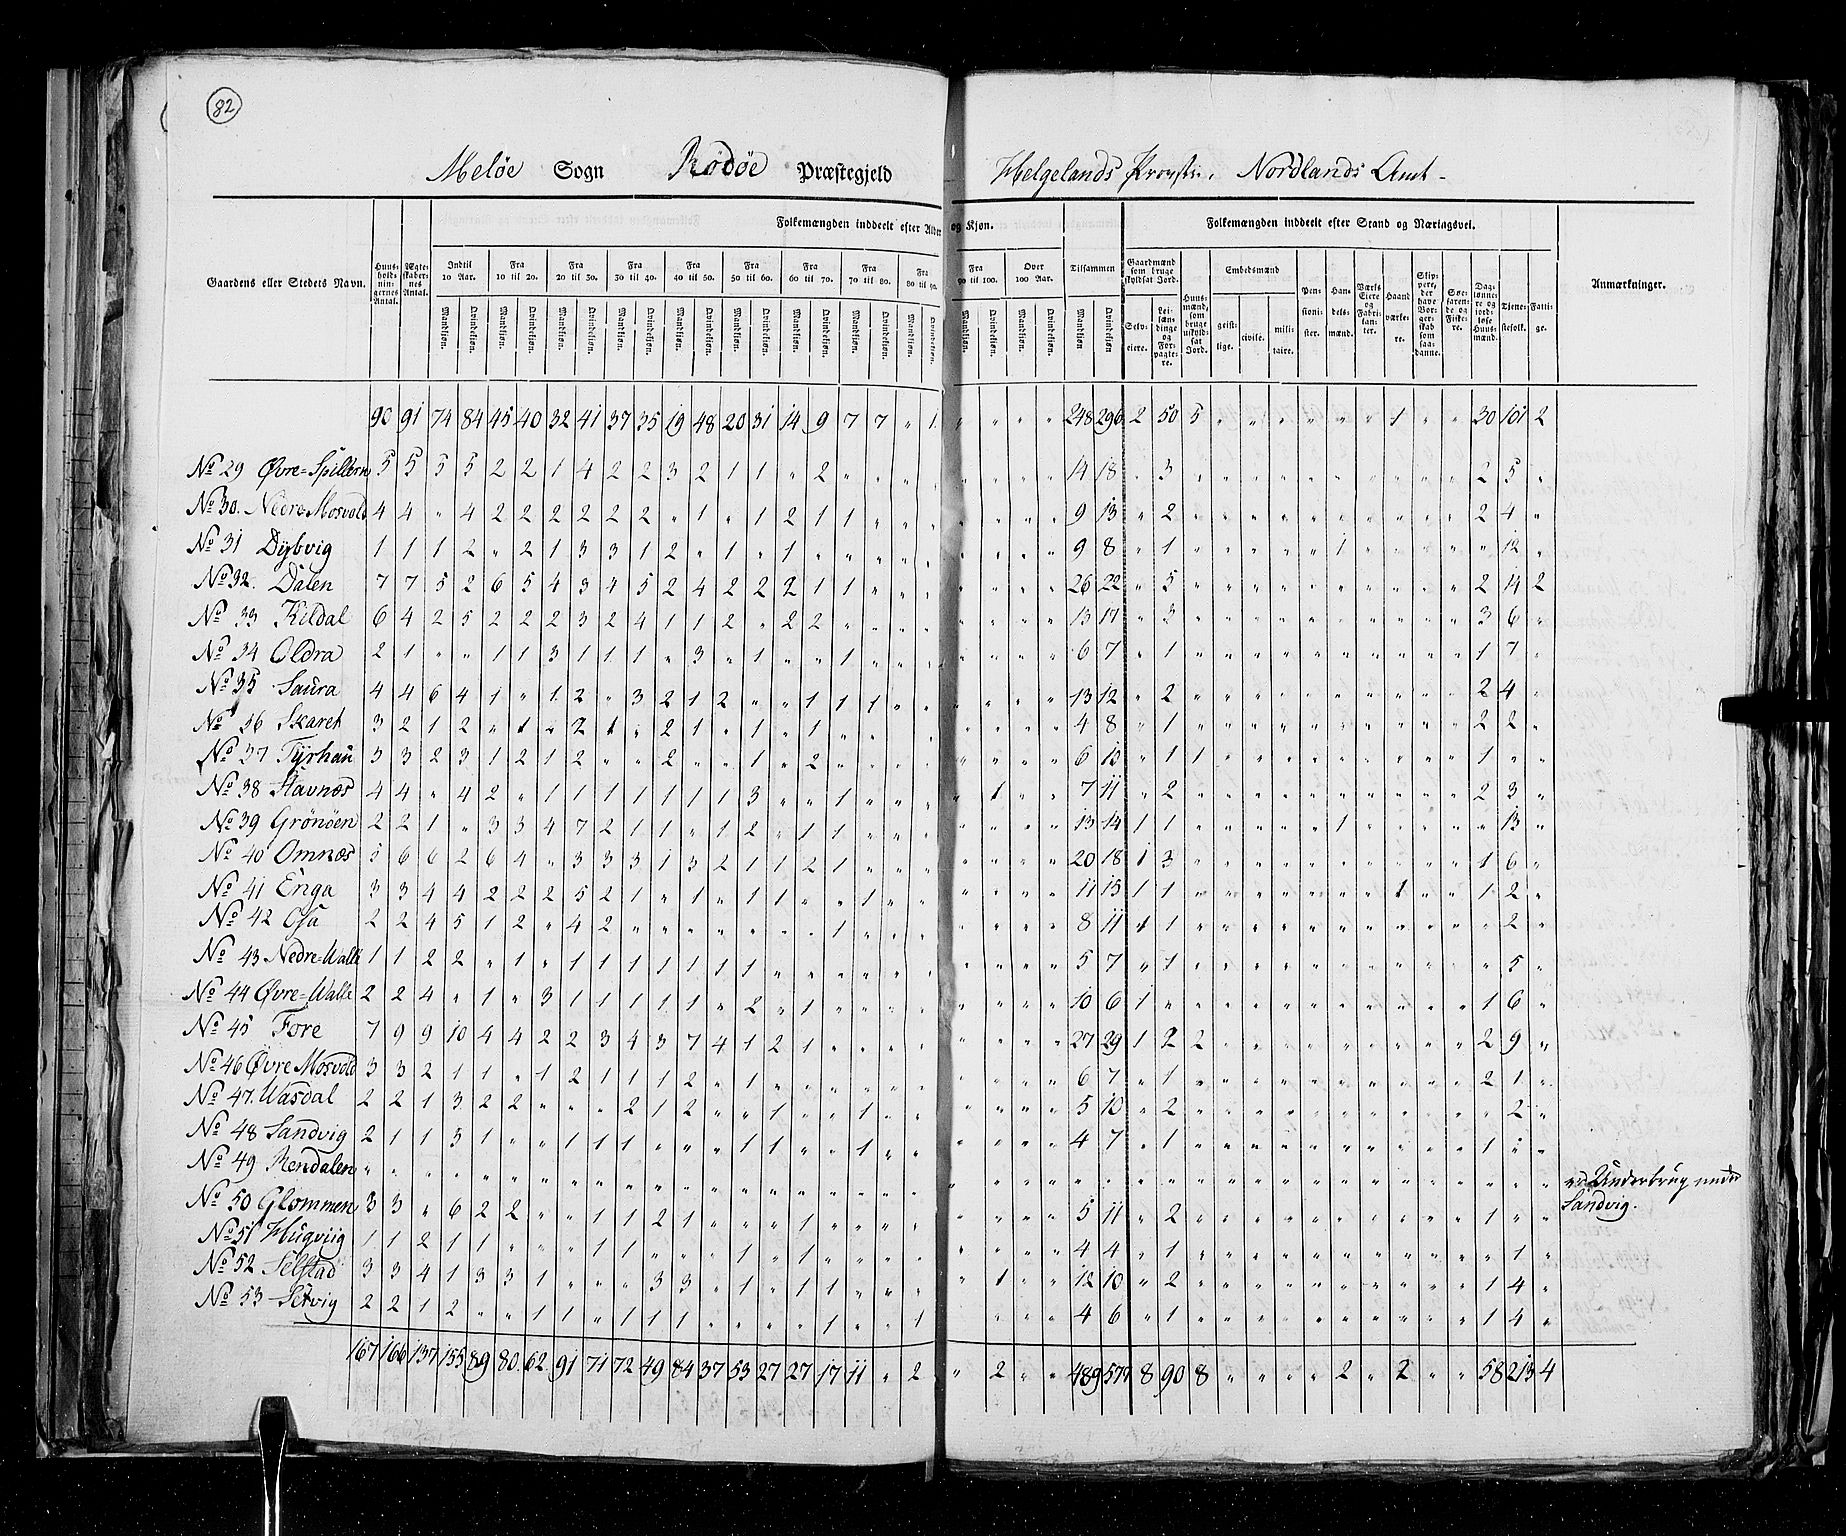 82
Meløe Sogn Rødøe Præstegjeld Helgelands Provstie. Nordlands Amt.
Folkemængden inddeelt efter Alder og Kjøn. Folkemængden inddeelt efter Stand og Næringsvei.
Gaardens eller Stedets Navn. Huusholdningernes Antal. Ægteskabernes Antal. Indtil 10 Aar. Fra 10 til 20. Fra 20 til 30. Fra 30 til 40. Fra 40 til 50. Fra 50 til 60. Fra 60 til 70. Fra 70 til 80. Fra 80 til 90. Fra 90 til 100. Over 100 Aar. Tilsammen Gaardmænd som bruge skyldsat Jord. Selveiere. Leilændinge og Forpagtere. Huusmænd, som bruge uskyldsat Jord. Embedsmænd geistlige. civile. militaire. Pensionister. Handelsmænd. Værks Eiere og Fabrikanter. Haandværkere. Skippere, der have Borgerskab som saadanne. Søefarende og Fiskere. Daglønnere og jordløse Huusmænd. Tjenestefolk. Fattige. Anmærkninger.
Mandkjøn. Qvindekjøn. Mandkjøn. Qvindekjøn. Mandkjøn. Qvindekjøn. Mandkjøn. Qvindekjøn. Mandkjøn. Qvindekjøn. Mandkjøn. Qvindekjøn. Mandkjøn. Qvindekjøn. Mandkjøn. Qvindekjøn. Mandkjøn. Qvindekjøn. Mandkjøn. Qvindekjøn. Mandkjøn. Qvindekjøn. Mandkjøn Qvindekjøn.
90 91 74 84 45 40 32 41 37 35 19 48 20 31 14 9 7 7 " 1 " " " " 248 296 2 50 5 " " " " " " 1 " " 30 101 2
No 29 Øvre=Spildern 5 5 5 5 2 2 1 4 2 2 3 2 1 1 " 2 " " " " " " " " 14 18 " 3 " " " " " " " " " " 2 5 "
No 30. Nedre Mosvold 4 4 " 4 2 2 2 2 2 2 " 1 " 1 2 1 1 " " " " " " " 9 13 " 2 " " " " " " " " " " 2 4 "
No 31 Dybvig 1 1 1 2 " 2 1 3 3 1 2 " 1 " 1 " " " " " " " " " 9 8 " 1 " " " " " 1 " " " " " 12 "
No 32. Dalen 7 7 5 2 6 5 4 3 4 5 2 4 2 2 2 1 1 " " " " " " " 26 22 " 5 " " " " " " " " " " 2 14 2
No 33 Kildal 6 4 2 5 2 2 2 3 2 4 1 1 2 " 2 2 " " " " " " " " 13 17 " 3 " " " " " " " " " " 3 6 "
No 34 Oldra 2 1 " " 1 1 3 1 1 1 " 3 " 1 " " 1 " " " " " " " 6 7 " 1 " " " " " " " " " " 1 7 "
No 35 Saura 4 4 6 4 1 " 1 2 " 3 2 1 2 " " 1 1 1 " " " " " " 13 12 " 2 " " " " " " " " " " 2 4 "
No 36 Skaret 3 2 1 2 " 1 " 2 1 " 2 1 " 1 " 1 " " " " " " " " 4 8 " 1 " " " " " " " " " " 2 2 "
No 37 Tyrhau 3 3 2 3 1 2 1 2 " " 2 " " 1 " 2 " " " " " " " " 6 13 " 1 1 " " " " " " " " " 1 " "
No 38 Stavnæs 4 4 " 4 2 " 1 1 1 1 1 1 1 3 " " 1 " " " " 1 " " 7 11 " 2 " " " " " " " " " " 2 3 "
No 39 Grönöen 2 2 1 " 3 3 4 7 2 1 1 " 1 2 " 1 1 " " " " " " " 13 14 1 1 " " " " " 1 " " " " " 13 "
No 40 Omnæs 5 6 6 2 6 4 " 3 3 3 1 3 2 1 1 2 1 " " " " " " " 20 18 1 3 " " " " " " " " " " 1 6 "
No 41 Enga 3 3 4 4 2 2 2 5 2 1 " 1 " 1 1 " " 1 " " " " " " 11 15 1 1 " " " " " " " 1 " " 1 2 "
No 42 Osa 2 2 4 5 1 2 " 4 2 " " " " " " " 1 " " " " " " " 8 11 1 1 " " " " " " " " " " " 2 "
No 43 Nedre=Walle 1 1 2 2 " 1 " 1 1 1 1 1 1 1 " " " " " " " " " " 5 7 " 1 " " " " " " " " " " " 5 "
No 44 Øvre=Walle 2 2 4 " 1 " 3 1 1 1 1 1 " 2 " 1 " " " " " " " " 10 6 1 " " " " " " " " " " " 1 6 "
No 45 Fore 7 9 9 10 4 4 2 2 3 4 3 7 4 1 2 1 " " " " " " " " 27 29 1 2 2 " " " " " " " " " 2 9 "
No 46 Øvre Mosvold 3 3 2 1 1 " 1 2 1 1 1 2 " 1 " " " " " " " " " " 6 7 " 1 " " " " " " " " " " 2 1 "
No 47. Wasdal 2 2 1 3 2 2 " " " 2 1 2 " " 1 " " 1 " " " " " " 5 10 " 2 " " " " " " " " " " " 2 "
No 48 Sandvig 2 1 1 3 1 " " 1 1 1 " " " 1 1 " " 1 " " " " " " 4 7 " 1 " " " " " " " " " " 1 " "
No 49 Rendalen " " " " " " " " " " " " " " " " " " " " " " " " " " " " " " " " " " " " " " " " " er Underbrug under
Sandvig.
No 50 Glommen 3 3 " 6 2 2 " " 1 1 2 1 " " " 1 " " " " " " " " 5 11 " 2 " " " " " " " " " " 1 " "
No 51 Hugviig 1 1 2 1 1 " " " 1 1 " " " 1 " 1 " " " " " " " " 4 4 " 1 " " " " " " " " " " " 1 "
No 52 Selstad 3 3 4 1 3 3 1 " " " 3 3 " 1 " 1 1 " " " " 1 " " 12 10 " 2 " " " " " " " " " " 1 4 "
No 53 Setvig 2 2 1 2 " " 1 1 " 1 1 1 " " " " 1 " " 1 " " " " 4 6 " 1 " " " " " " " " " " 1 4 "
167 166 137 155 89 80 62 91 71 72 49 84 37 53 27 27 17 11 " 2 " 2 " " 489 577 8 90 8 " " " " 2 " 2 " " 58 213 4